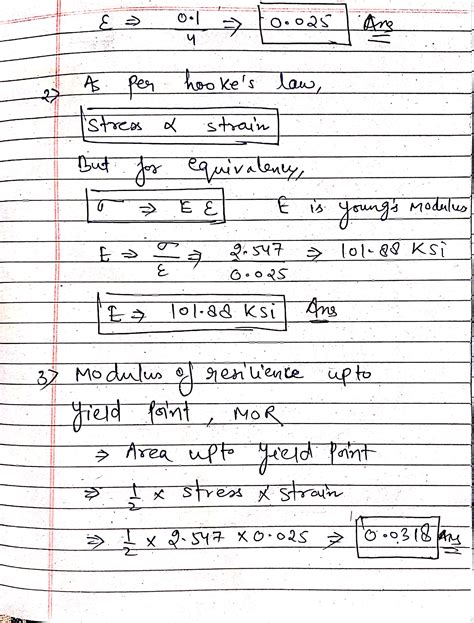 ε ⇒ 0.1/4 ⇒ 0.025 Ans
2) As per hooke's law,
Stress α strain
But for equivalency,
σ ⇒ E ε E is young's Modulus
E ⇒ σ/ε ⇒ 2.547/0.025 ⇒ 101.88 KSi
E ⇒ 101.88 KSi Ans
3) Modulus of resilience upto
Yield Point, MOR
⇒ Area upto Yield Point
⇒ 1/2 × stress × strain
⇒ 1/2 × 2.547 × 0.025 ⇒ 0.0318 Ans